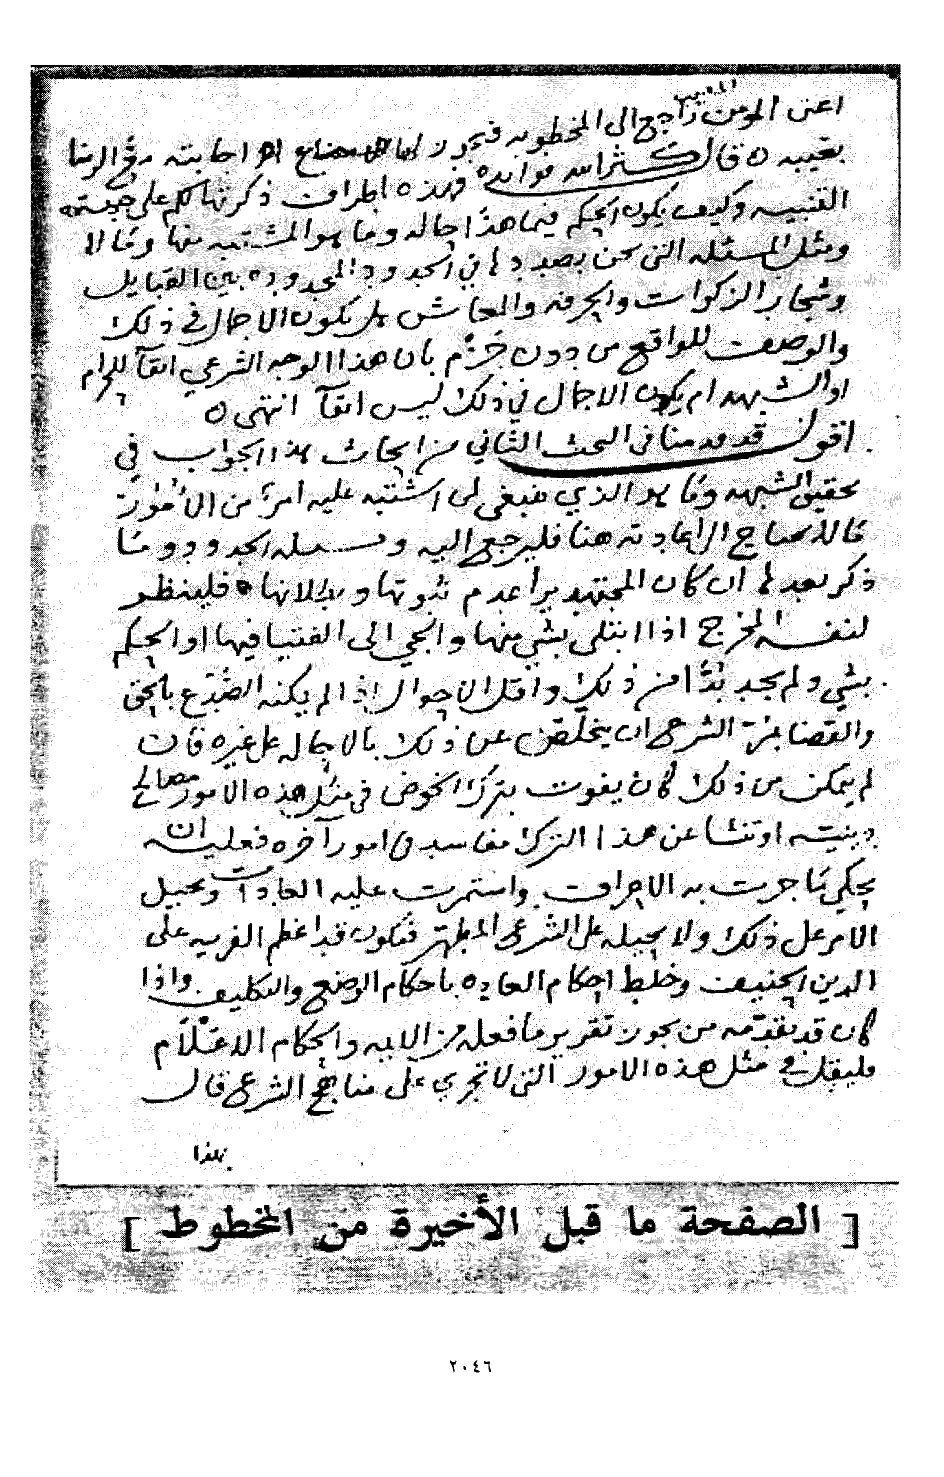 اعنى المومن راجع الى المخطوبه فيجوز اجابته مع الرضا
بغيبه ٥ قال كثر الله فوايده وهذه اطراف ذكرتها لكم على جهة
التنبيه وكيف يكون الحكم فيما هذا حاله وما هو المشتبه منها وما لا
ومثل المسئله التي نحن بصددها في الحدود المحدوده بين القبايل
والزكوات والحرفه والمعاش هل يكون الاجمال في ذلك
والوصف للواقع من دون جزم بان هذا الوجه الشرعي اتقآ للحرام
او الشبهه ام يكون الاجمال في ذلك ليس اتقآ انتهى ٥
اقول قد قدمنا في البحث الثاني من ابحاث هذا الجواب في
تحقيق الشبهه وما هو الذي ينبغي لمن اشتبه عليه امرٌ من الأمور
مالا يحتاج الى اعادته هنا فليرجع اليه ومسئله الحدود وما
ذكر بعدها ان كان المجتهد يرا عدم ثبوتها وبطلانها فلينظر
لنفسه المخرج اذا ابتلى بشي منها والجي الى الفتيا فيها او الحكم
بشي ولم يجد بدًّا من ذلك واقل الاحوال اذا لم يمكنه الصّدع بالحق
والقضا بمرّ الشرع ان يتخلّص عن ذلك بالاحاله على غيره فان
لم يمكن من ذلك كان يفوت بترك الخوض في مثل هذه الامور مصالح
دينيه او تنشا عن هذا الترك مفاسد في امور آخره فعليه ان
يحكي ما جرت به الاعراف واستمرت عليه العادات ويحيل
الامر على ذلك ولا يحيله على الشرع المطهر فيكون قد اعظم الفريه على
الدين الحنيف وخلط احكام العاده باحكام الوضع والتكليف واذا
كان قد تقدّمه من يجوز تقرير ما فعله من الايمه والحكام الاعلام
فليقل في مثل هذه الامور التي لا تجري على مناهج الشرع قال
بهذا
[ الصفحة ما قبل الأخيرة من المخطوط ]
٢٠٤٦